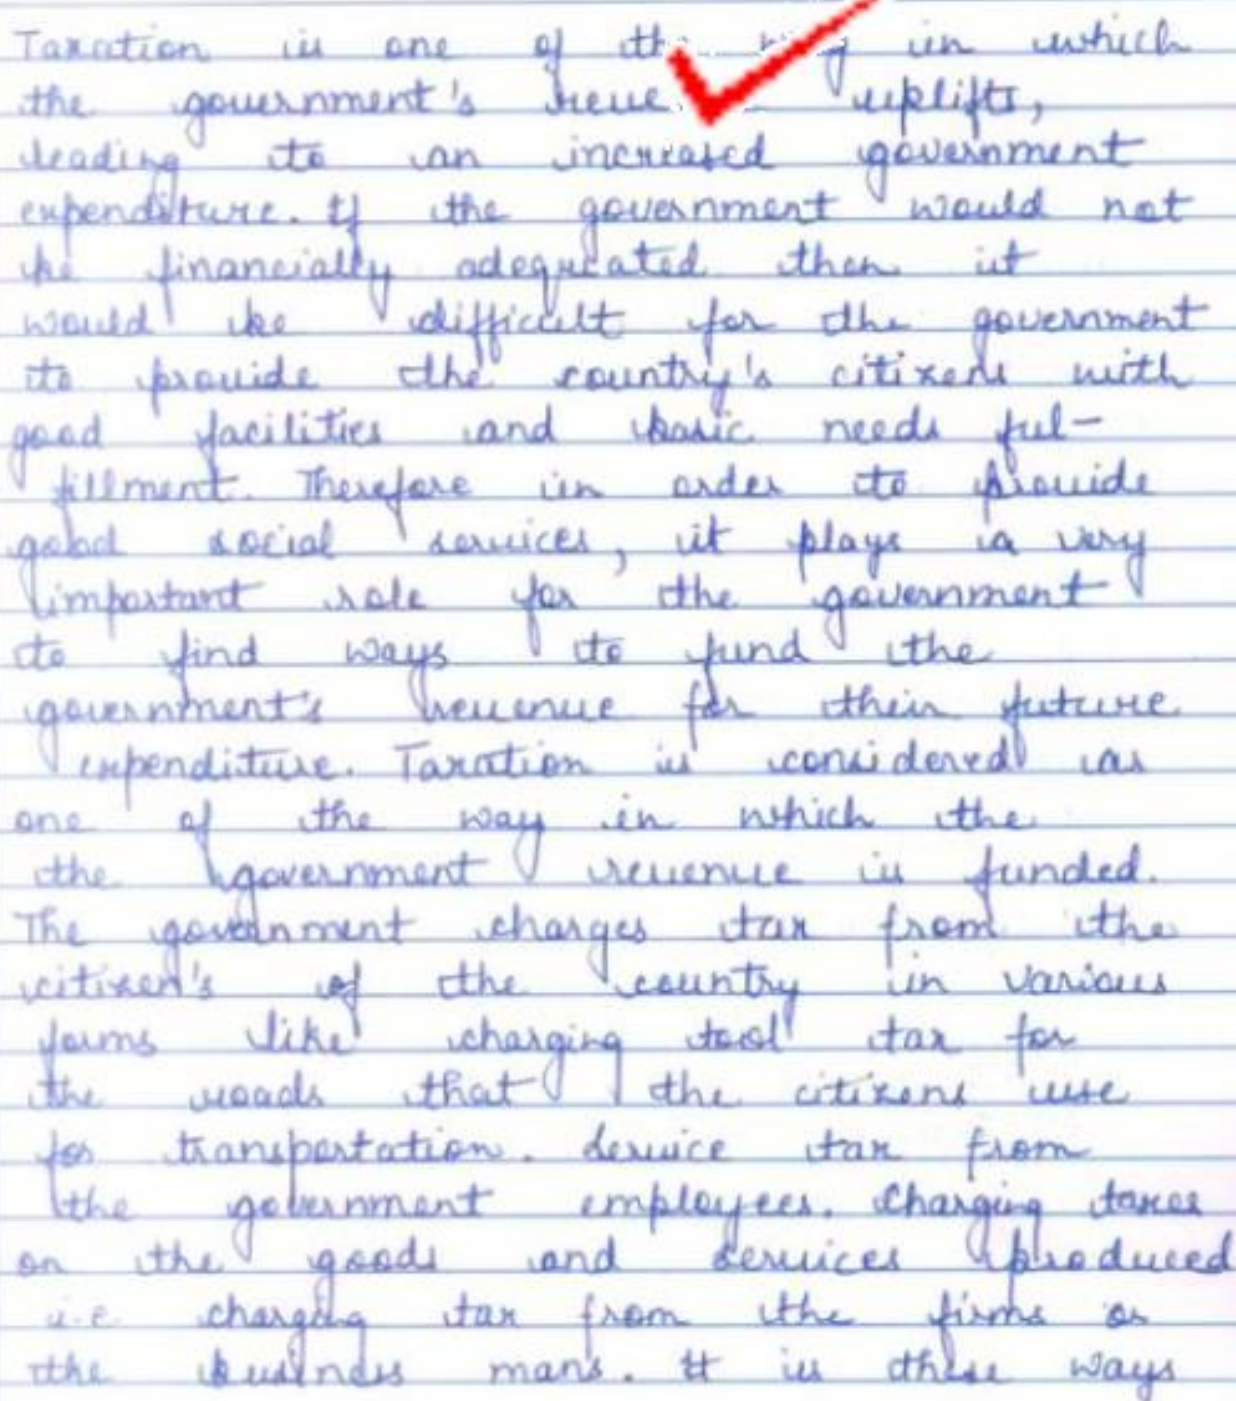 Taxation is one of the way in which
the government's uplifts,
leading to an increased government
expenditure. If the government would not
be financially adequated then it
would be difficult for the government
to provide the country's citizens with
good facilities and basic needs ful-
fillment. Therefore in order to provide
good social services, it plays a very
important role for the government
to find ways to fund the
government's revenue for their future
expenditure. Taxation is considered as
one of the way in which the
the government revenue is funded.
The government charges tax from the
citizen's of the country in various
forms like charging tool tax for
the roads that the citizens use
for transportation. Service tax from
the government employees. Charging taxes
on the goods and services produced
i.e. charging tax from the firms or
the business mans. It is these ways